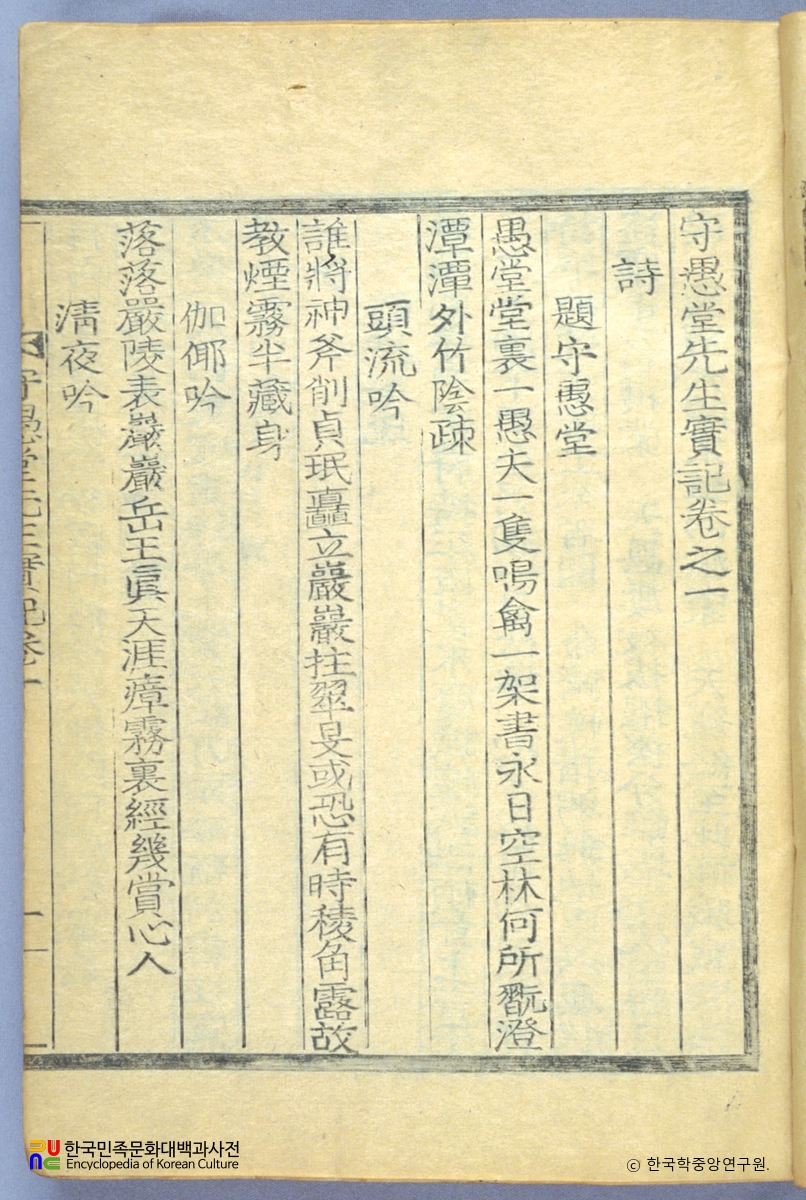 守愚堂先生實記卷之一
詩
題守愚堂
愚堂堂裏一愚夫一隻鳴禽一架書永日空林何所翫澄
潭潭外竹陰疎
頭流吟
誰將神斧削貞珉矗立巖巖拄翠旻或恐有時稜角露故
教煙霧半藏身
伽倻吟
落落嚴陵表巖巖岳王眞天涯瘴霧裏經幾賞心人
淸夜吟
守愚堂先生實記卷一
一
한국민족문화대백과사전
Encyclopedia of Korean Culture
ⓒ 한국학중앙연구원.